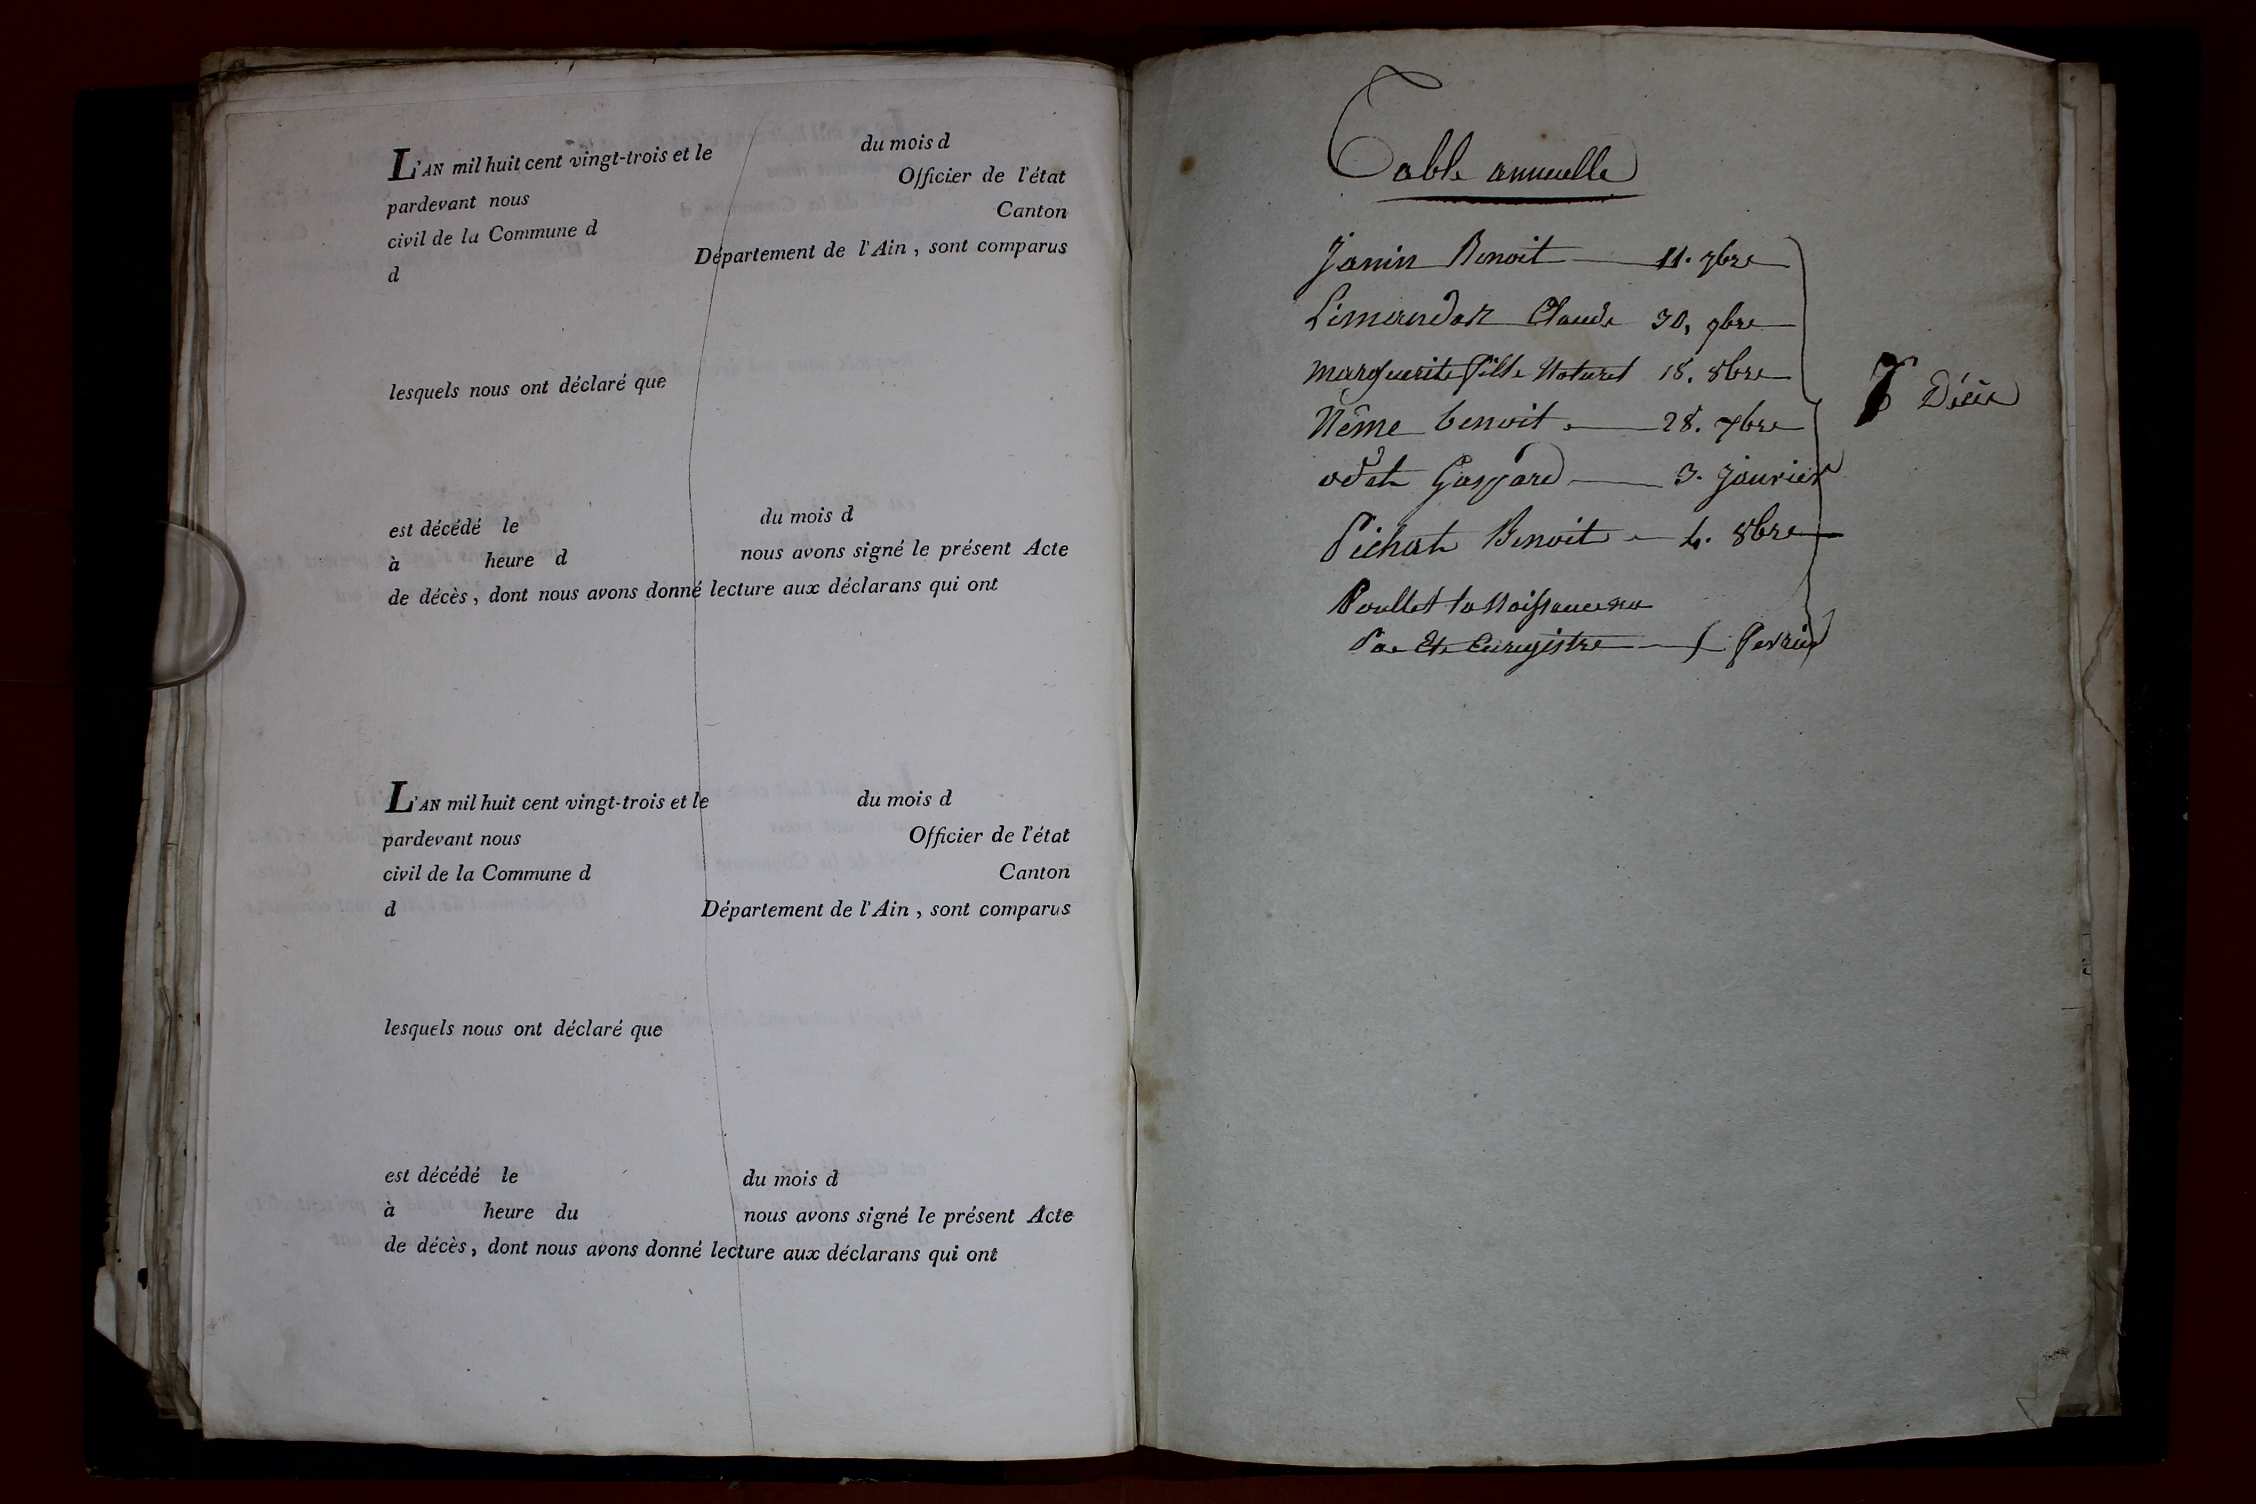 L'AN mil huit cent vingt-trois et le du mois d
pardevant nous Officier de l'état
civil de la Commune d Canton
d Département de l'Ain, sont comparus
lesquels nous ont déclaré que
est décédé le du mois d
à heure d nous avons signé le présent Acte
de décès, dont nous avons donné lecture aux déclarans qui ont
L'AN mil huit cent vingt-trois et le du mois d
pardevant nous Officier de l'état
civil de la Commune d Canton
d Département de l'Ain, sont comparus
lesquels nous ont déclaré que
est décédé le du mois d
à heure du nous avons signé le présent Acte
de décès, dont nous avons donné lecture aux déclarans qui ont
Table annuelle
Janin Benoit 11. 7bre
Limandas Claude 30, 9bre
Marguerite fille Naturel 18. 8bre
Nême benoit 28. 7bre
odet Gaspard 3. Janvier
Pichat Benoit 4. 8bre
Poullet la Naissance na
Pas Ete Enregistre Fevrier
7 Décès